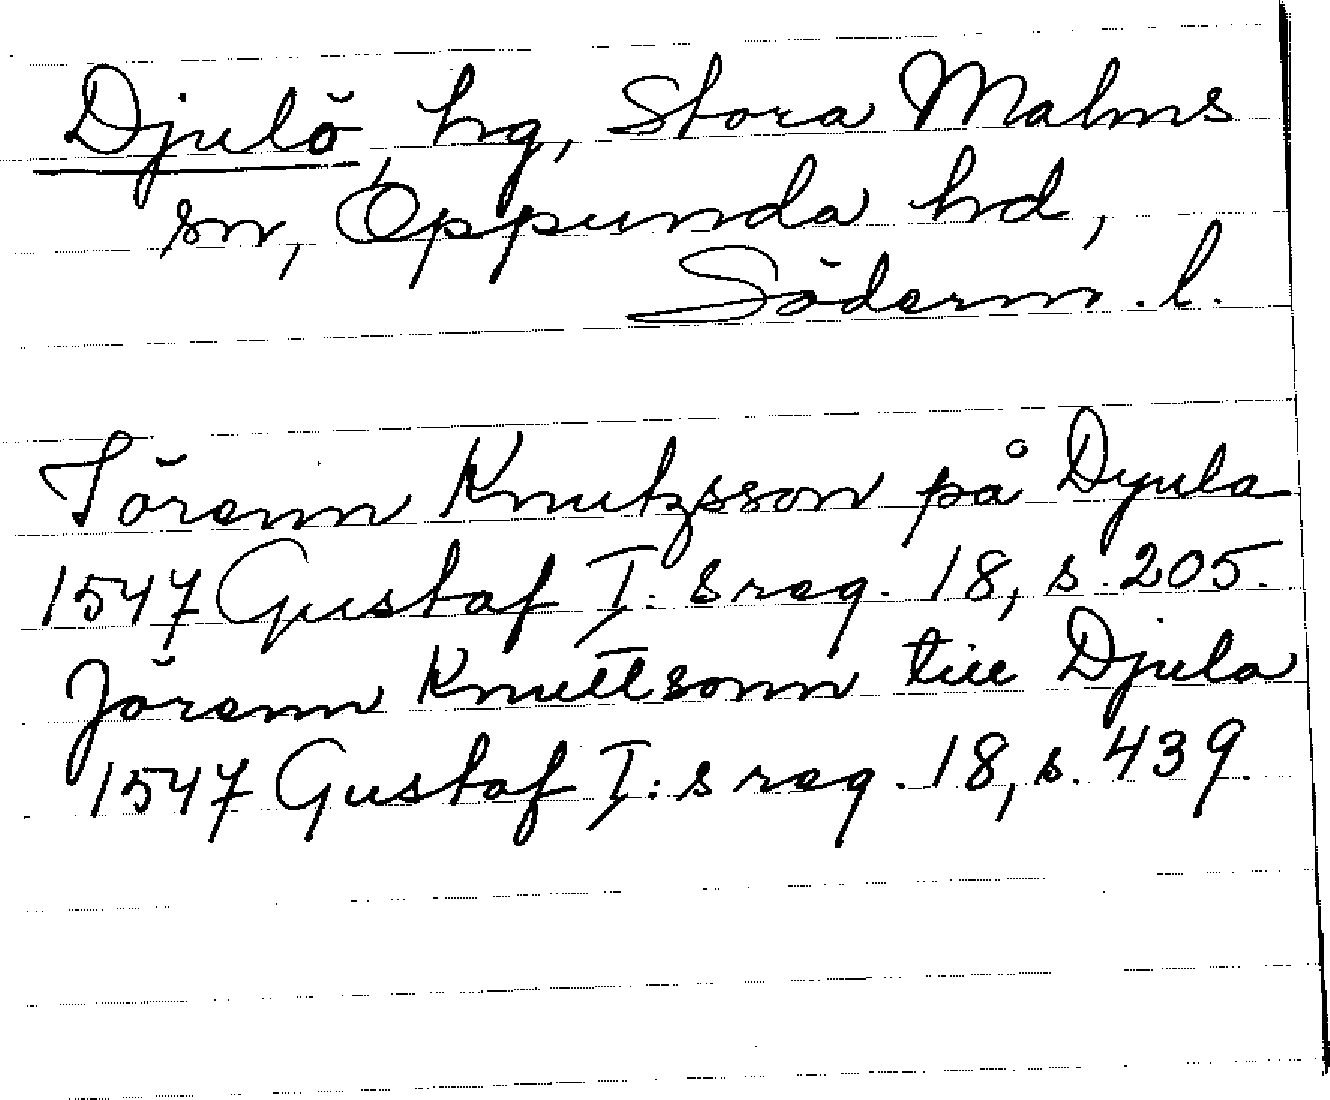 Djulö, hg, Stora Malms
sn, Oppunda hd,
Söderm. l.
Jörenn Knutzsson på Dyula
1547 Gustaf I:s reg. 18, s. 205.
Jörenn Knuttsonn till Djula
1547 Gustaf I:s reg. 18, s. 439.